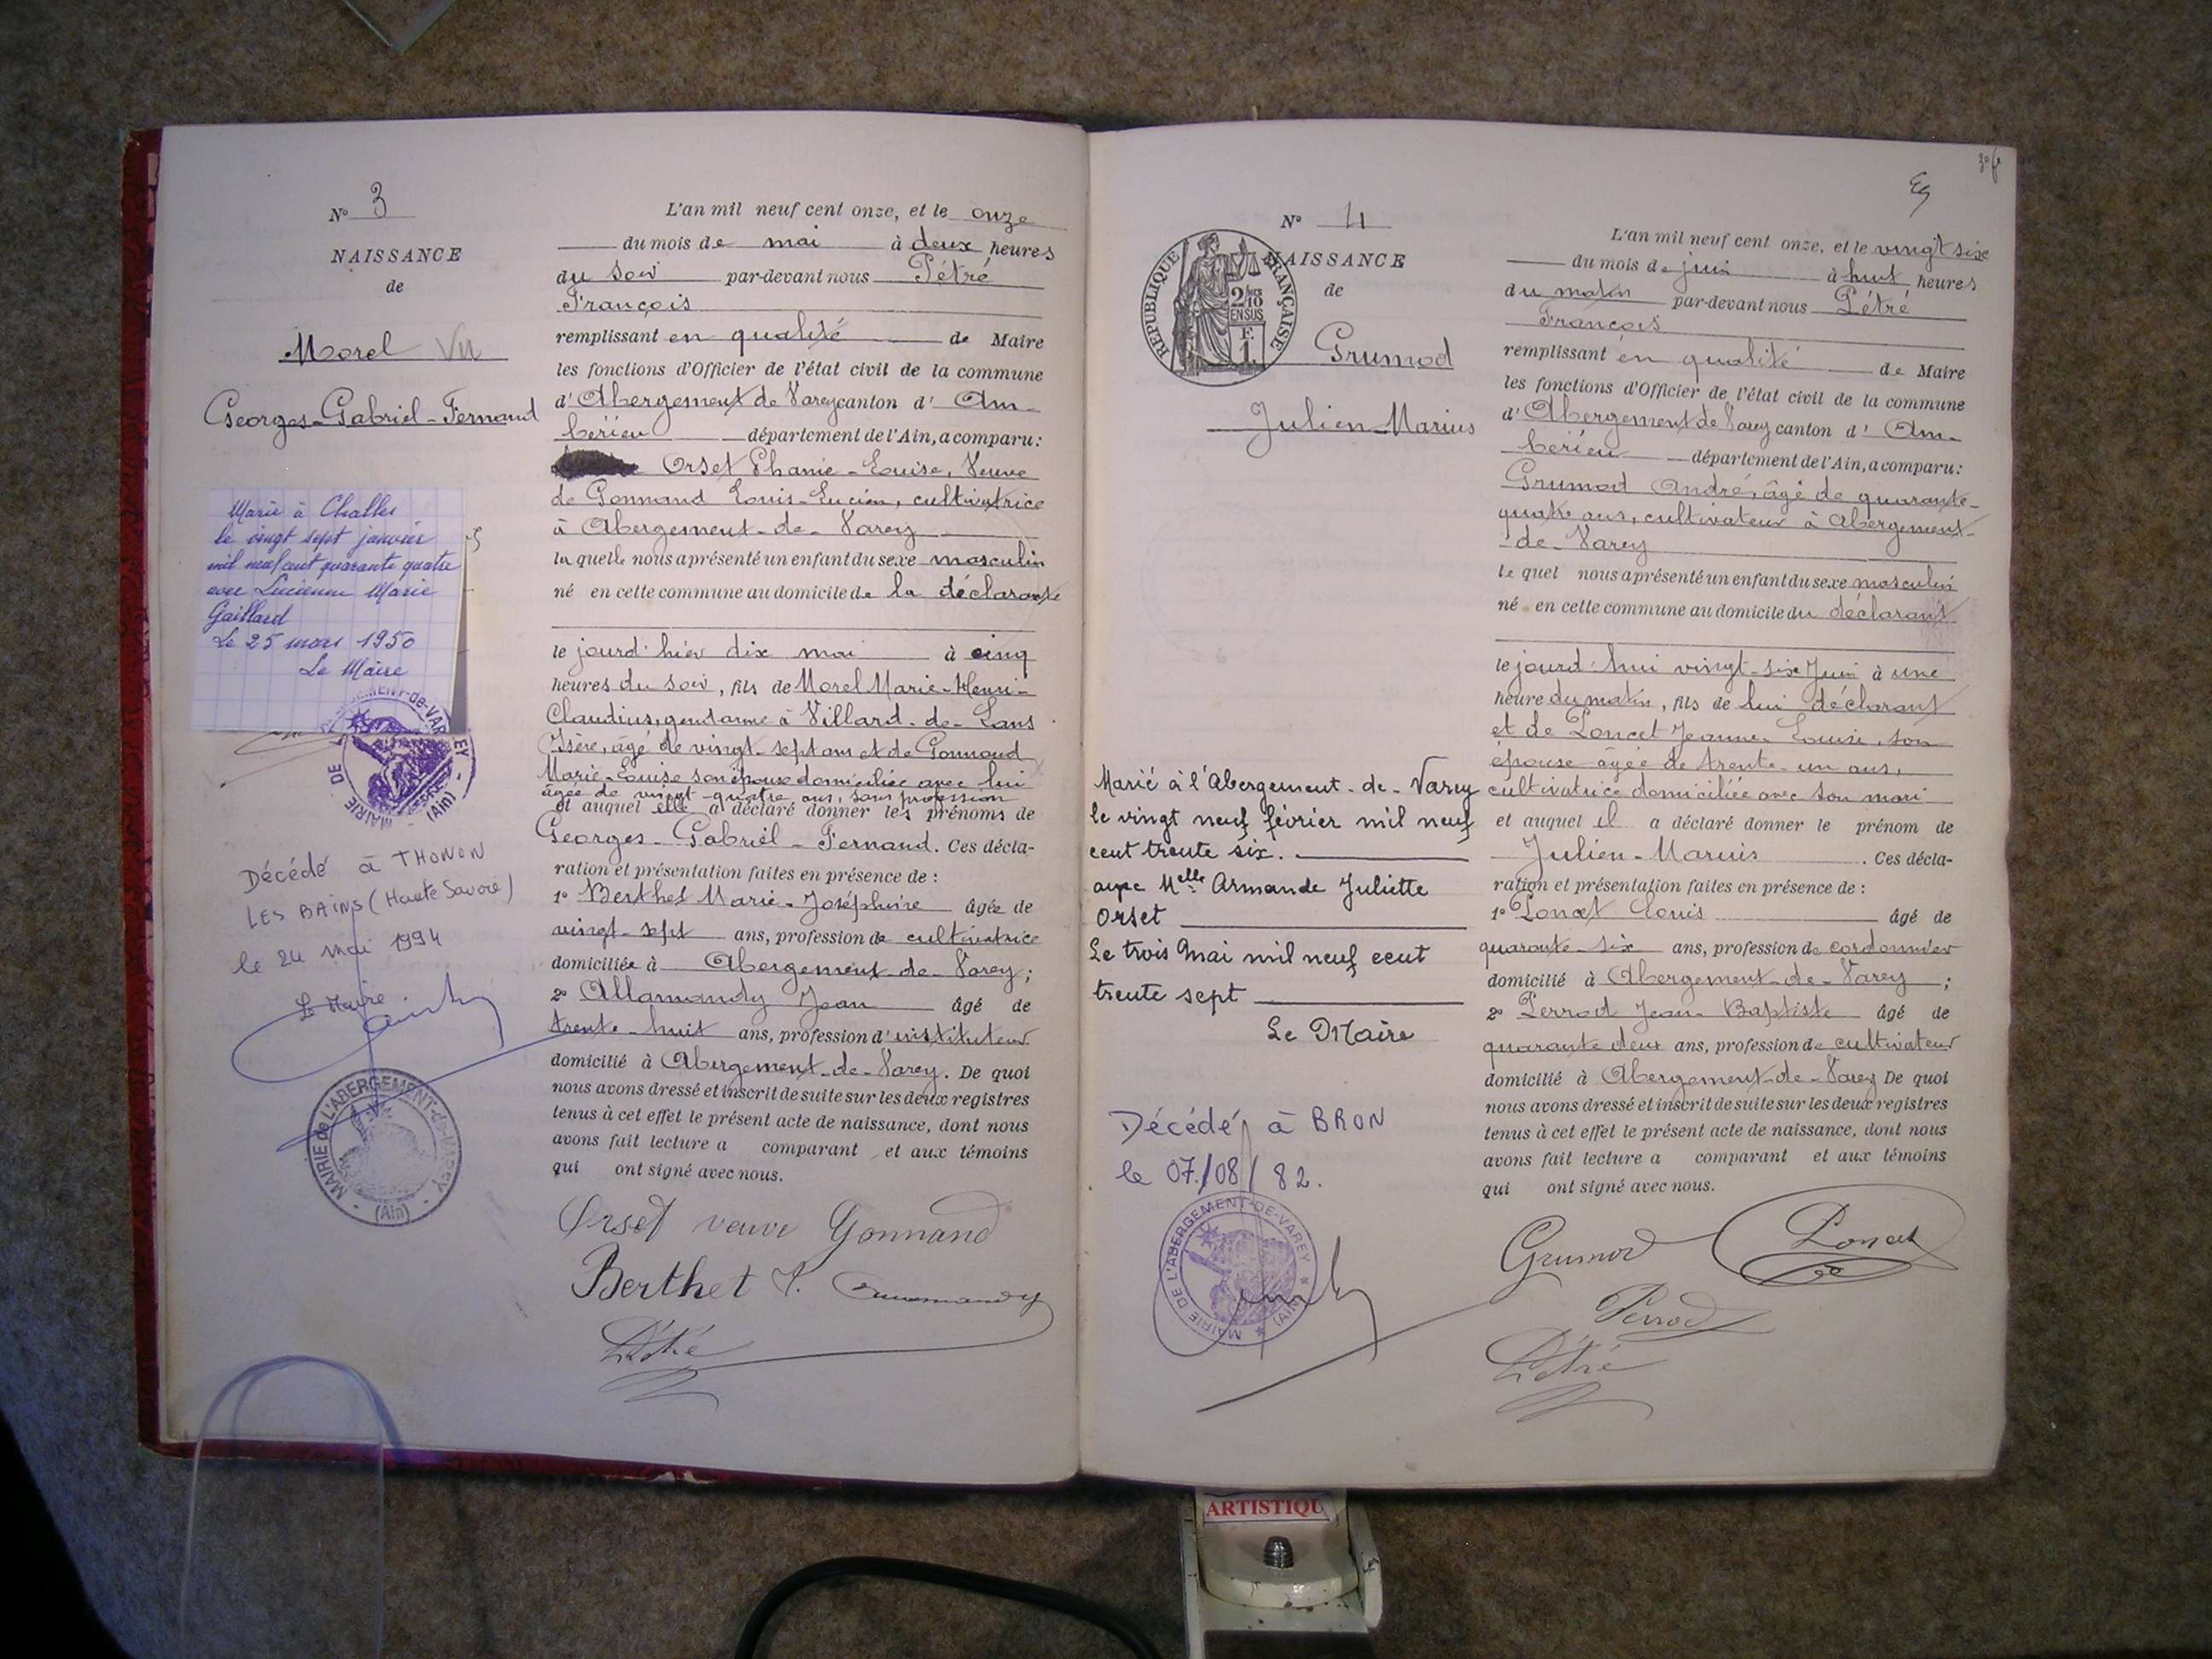 N° 3
NAISSANCE
de
Morel Vu
Georges-Gabriel-Fernand
Marié à Challes
le vingt sept janvier
mil neuf cent quarante quatre
avec Lucienne Marie
Gaillard
Le 25 mars 1950
Le Maire
MAIRIE DE
(Ain)
Décédé à THONON
LES BAINS (Haute Savoie)
le 24 mai 1994
Le Maire
MAIRIE de L'ABERGEMENT-de-VAREY
(Ain)
L'an mil neuf cent onze, et le onze
du mois de mai à deux heures
du soir par-devant nous Pétré
François
remplissant en qualité de Maire
les fonctions d'Officier de l'état civil de la commune
d'Abergement de Varey canton d'Am-
bérieu département de l'Ain, a comparu:
Orset Phanie-Louise, Veuve
de Gonnand Louis-Lucien, cultivatrice
à Abergement-de-Varey
la quelle nous a présenté un enfant du sexe masculin
né en cette commune au domicile de la déclarante
le jour d'hier dix mai à cinq
heures du soir, fils de Morel Marie-Henri-
Claudius, gendarme à Villard-de-Lans
Isère, âgé de vingt-sept ans et de Gonnand
Marie-Louise son épouse domiciliée avec lui
âgée de vingt-quatre ans, sans profession
et auquel elle a déclaré donner les prénoms de
Georges-Gabriel-Fernand. Ces décla-
ration et présentation faites en présence de :
1° Berthet Marie-Joséphine âgée de
vingt-sept ans, profession de cultivatrice
domiciliée à Abergement-de-Varey;
2° Allarmandy Jean âgé de
trente-huit ans, profession d'instituteur
domicilié à Abergement-de-Varey. De quoi
nous avons dressé et inscrit de suite sur les deux registres
tenus à cet effet le présent acte de naissance, dont nous
avons fait lecture a comparant et aux témoins
qui ont signé avec nous.
Orset veuve Gonnand
Berthet J.
Pétré
3° f
N° 4
NAISSANCE
de
RÉPUBLIQUE FRANÇAISE
2/10
EN SUS
F.
1.
Grumod
Julien-Marius
Marié à l'Abergement-de-Varey
le vingt neuf février mil neuf
cent trente six.
avec Melle Armande Juliette
Orset
Le trois Mai mil neuf cent
trente sept
Le Maire
Décédé à BRON
le 07/08/82.
MAIRIE DE L'ABERGEMENT-DE-VAREY
(AIN)
L'an mil neuf cent onze, et le vingt six
du mois de juin à huit heures
du matin par-devant nous Pétré
François
remplissant en qualité de Maire
les fonctions d'Officier de l'état civil de la commune
d'Abergement de Varey canton d'Am-
bérieu département de l'Ain, a comparu:
Grumod André, âgé de quarante-
quatre ans, cultivateur à Abergement-
-de-Varey
le quel nous a présenté un enfant du sexe masculin
né en cette commune au domicile du déclarant
le jour d'hui vingt-six Juin à une
heure du matin, fils de lui déclarant
et de Poncet Jeanne-Louise, son
épouse âgée de trente-un ans,
cultivatrice domiciliée avec son mari
et auquel il a déclaré donner le prénom de
Julien-Marius. Ces décla-
ration et présentation faites en présence de :
1° Poncet Louis âgé de
quarante-six ans, profession de cordonnier
domicilié à Abergement-de-Varey;
2° Perrod Jean-Baptiste âgé de
quarante deux ans, profession de cultivateur
domicilié à Abergement-de-Varey De quoi
nous avons dressé et inscrit de suite sur les deux registres
tenus à cet effet le présent acte de naissance, dont nous
avons fait lecture a comparant et aux témoins
qui ont signé avec nous.
Grumod Poncet
Perrod
Pétré
ARTISTIQU